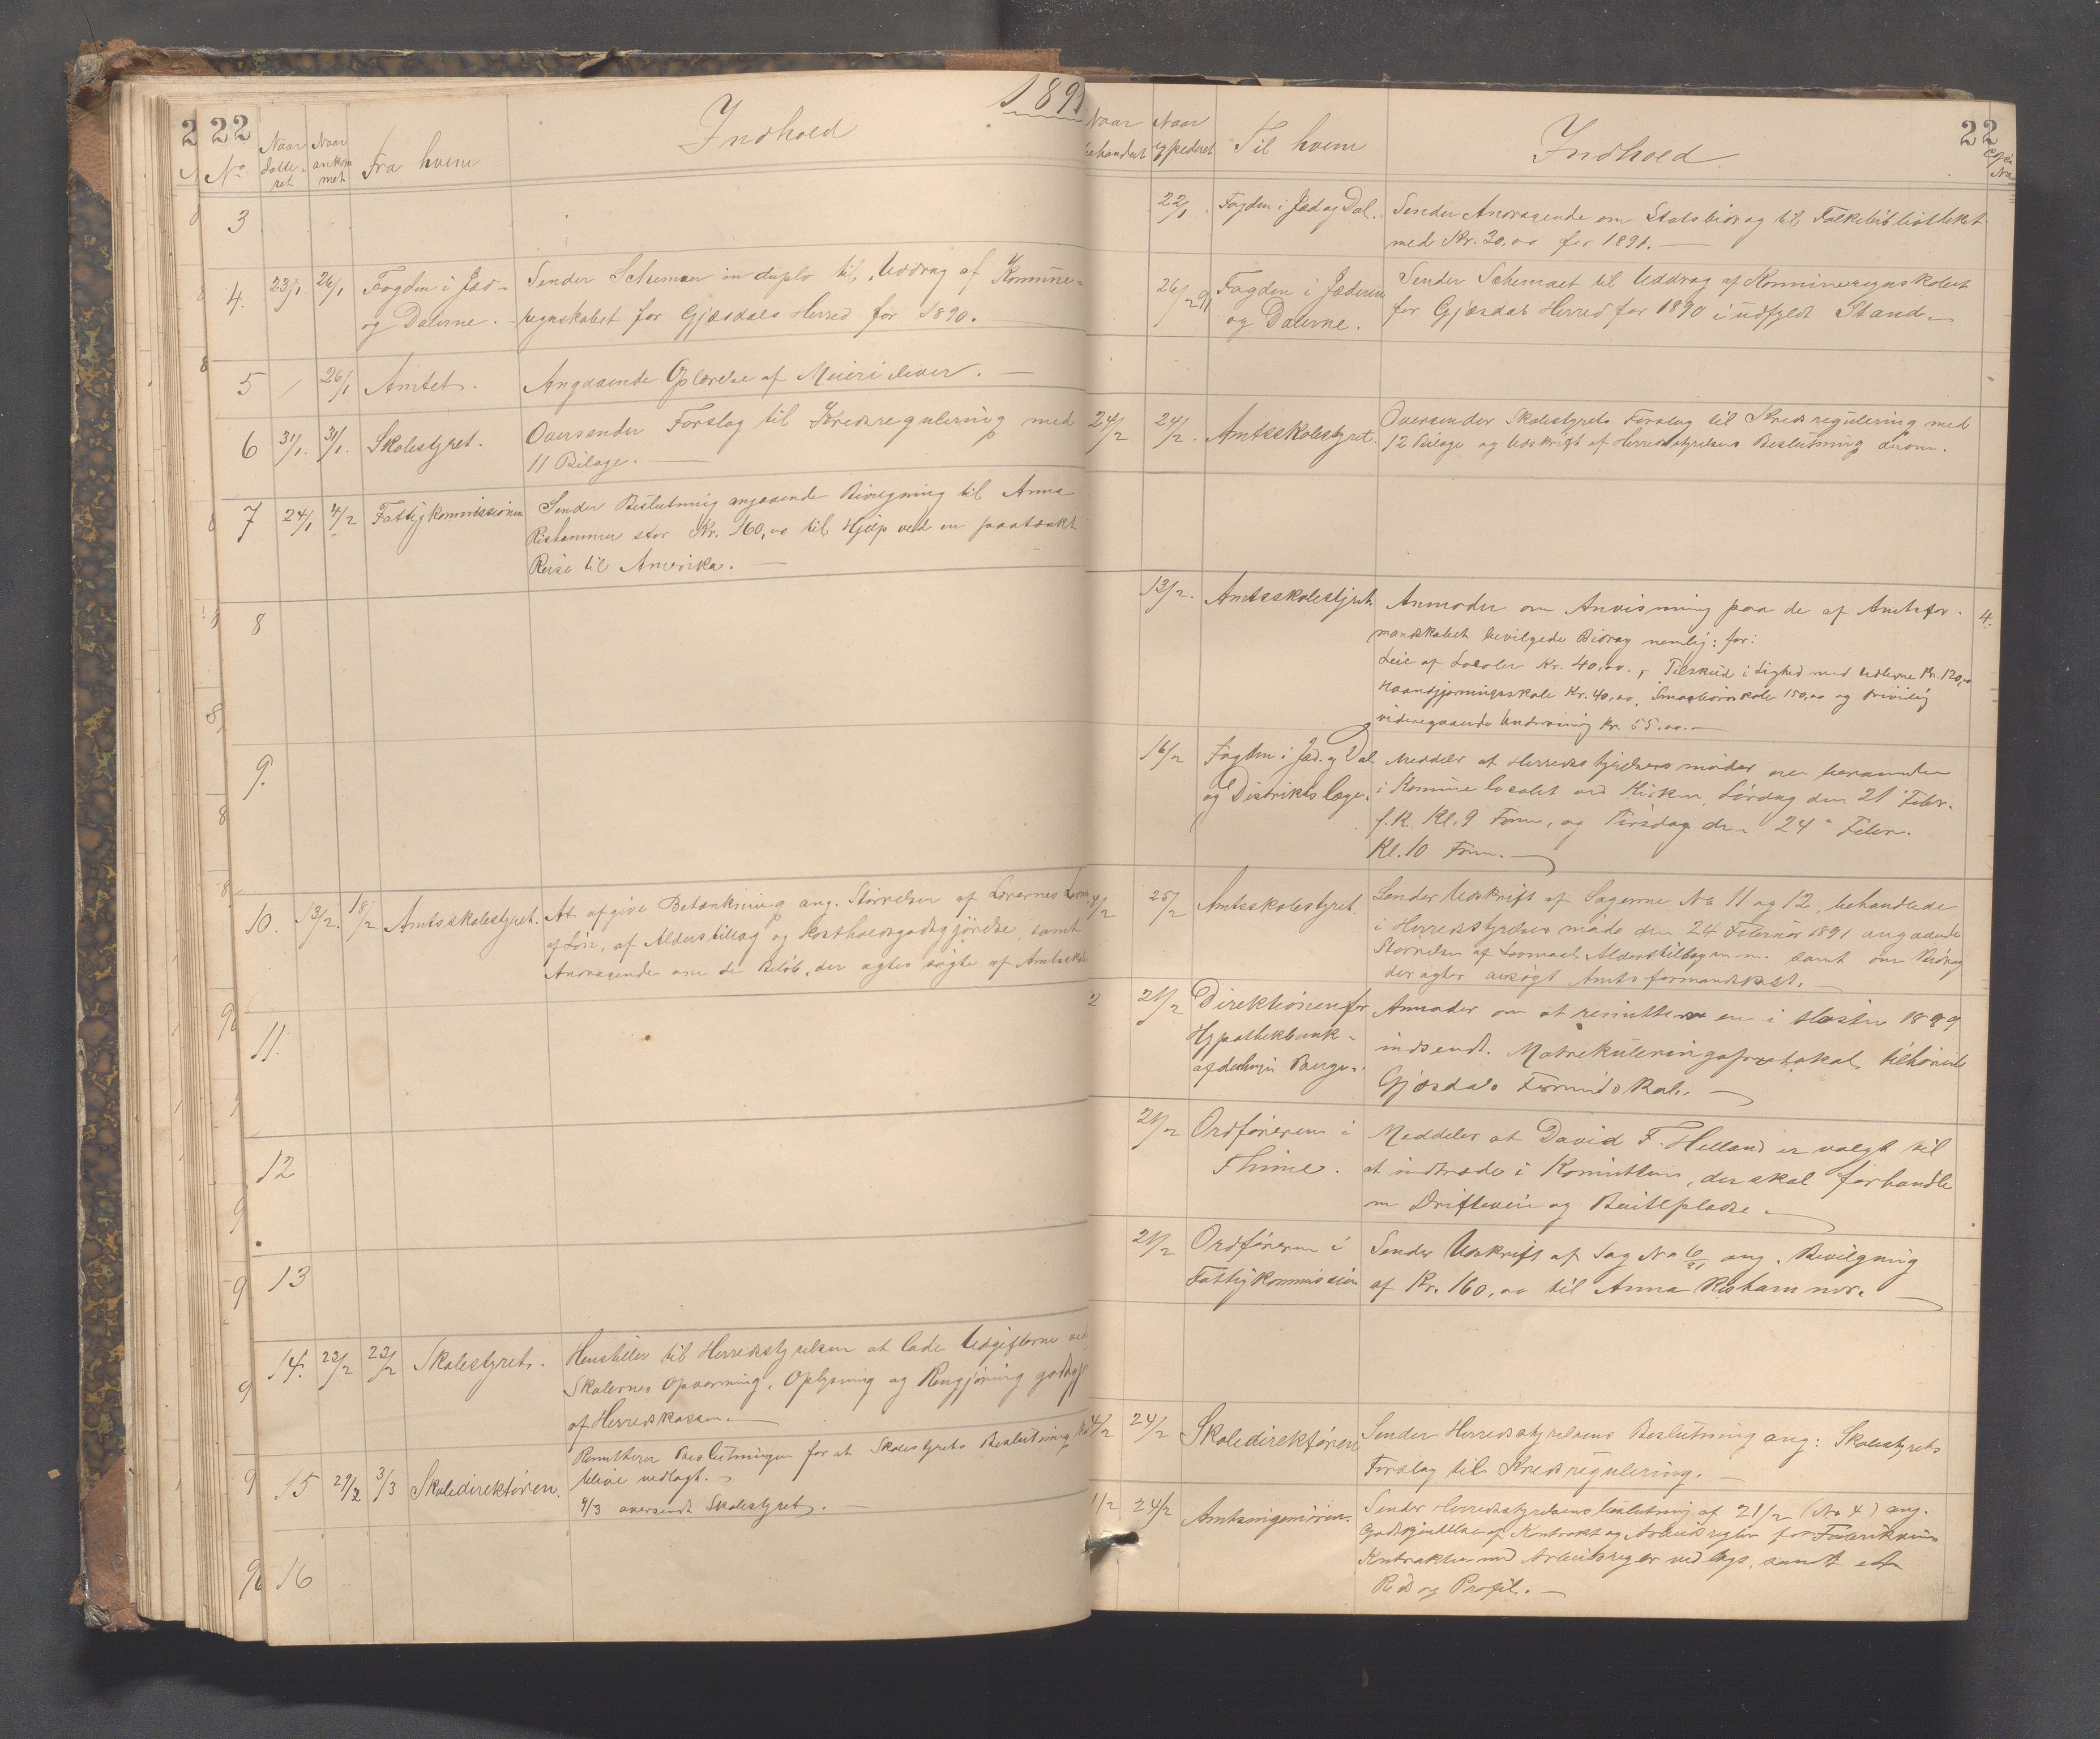 22
1891
No
Naar datteret
Naar ankommet
Fra hvem
Indhold
3
4. 23/1 26/1 Fogden i Jæd- Sender Schemaer in duplo til Uddrag af Kommune-
og Dalerne. regnskabet for Gjæsdals Herred for 1890.
5 26/1 Amtet. Angaaende Oplærelse af Meierielever.
6 31/1. 31/1. Skolestyret. Oversender Forslag til Kredsregulering med
11 Bilage.
7 24/1 4/2 Fattigkommissionen Sender Beslutning angaaende Bevilgning til Anna
Rishammer stor Kr. 160,00 til Hjælp ved en paatænkt
Reise til Amerika.
8
9.
10. 13/2. 18/2 Amtsskolestyret. At afgive Betænkning ang. Størrelsen af Lærernes
af Løn, af Alderstillæg og Kostholdsgodtgjörelse, samt
Andragende om de Beløb, der agtes søgte af
11.
12
13
14. 22/2 22/2 Skolestyret. Henstiller til Herredsstyrelsen at lade Udgifterne ved
Skolernes Opvarmning, Oplysning og Rengjøring
af Herredskassen.
15 29/2 3/3 Skoledirektøren. Remitterer Beslutningen for at Skolestyrets Beslutning
blive vedlagt.
4/3 oversendt Skolestyret.
16
22
Naar behandlet
Naar expederet
Til hvem
Indhold
No
22/1 Fogden i Jæd og Dal. Sender Andragende om Statsbidrag til Folkebibliotheket
med Kr. 30,00 for 1891.
26/1 91 Fogden i Jæderen Sender Schemaet til Uddrag af Kommuneregnskabet
og Dalerne. for Gjæsdal Herred for 1890 i udfyldt Stand.
24/2 24/2. Amtsskolestyret. Oversender Skolestyrets Forslag til Kredsregulering med
12 Bilage og Udskrift af Herredsstyrelsens Beslutning derom.
13/2. Amtsskolestyret Anmoder om Anvisning paa de af Amtsfor- 4.
mandskabet bevilgede Bidrag nemlig: for:
Leie af Locoler Kr. 40,00., Tilskud i Lighed med Udlerne Kr. 120,00
Haandgjerningsskole Kr. 40,00, Smaabørnskole 150,00 og frivillig
videregaaende Undervisning Kr. 55.00.
16/2 Fogden i Jæd. og Dal. Meddeler at Herredsstyrelsens møder ere berammede
og Distriktslæge. i Kommunelocalet ved Kirken, Lördag den 21 Febr.
f. K. Kl. 9 Form, og Tirsdag den 24 Febr.
Kl. 10 Form.
25/2 Amtsskolestyret. Sender Udskrift af Sagerne No 11 og 12, behandlede
i Herredsstyrelses møde den 24 Februar 1891 angaaende
Størrelsen af Alderstillæg m. m. samt om Bidrag
der agtes ansøgt Amtsformandskabet.
2 21/2 Direktionen for Anmoder om at remittere en i Høsten 1889
Hypothekbank- indsendt Matrikuleringsprotokol tilhørende
afdelingen Bergen. Gjæsdals Formandskab.
21/2 Ordføreren i Meddeler at David F. Helland er valgt til
Thime. at indtræde i Komitteen, der skal forhandle
m Driftevei og Beiteplads.
21/2 Ordføreren i Sender Udskrift af Sag No 6/91 ang. Bevilgning
Fattigkommission af Kr. 160,00 til Anna Rishammer.
24/2 24/2 Skoledirektøren Sender Herredsstyrelsens Beslutning ang: Skolestyrets
Forslag til Kredsregulering.
21/2 24/2 Amtsingeniøren. Sender Herredsstyrelsens beslutning af 21/2 (No 4) ang.
Godkjendelse af Kontrakt og Arbeidsregler for
Kontrakten med Arbeidsregler vedlægs, samt
Rids og Profil.